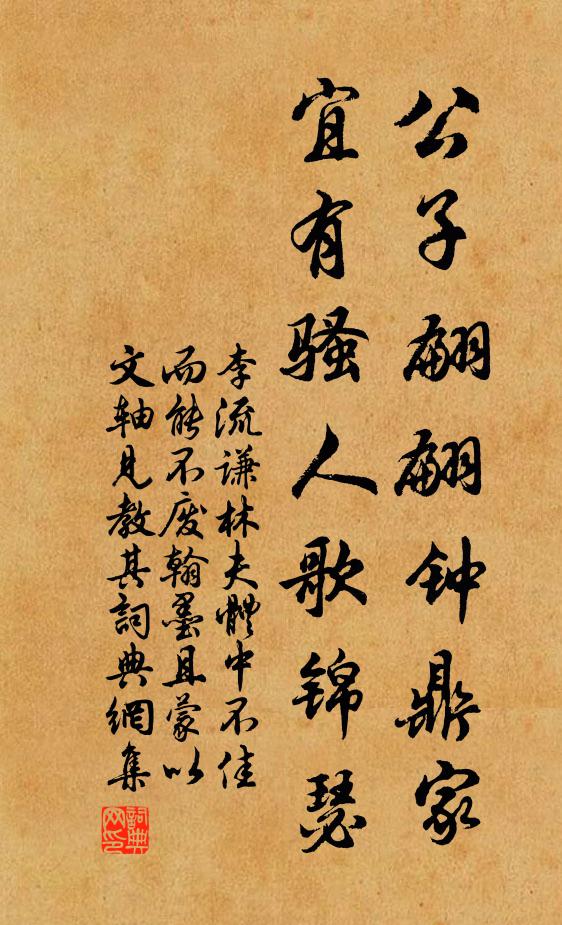 公子翩翩钟鼎家
宜有骚人歌锦瑟
李流谦林夫體中不佳
而能不废翰墨且蒙以
文轴见教其詞典網集
詞典网印